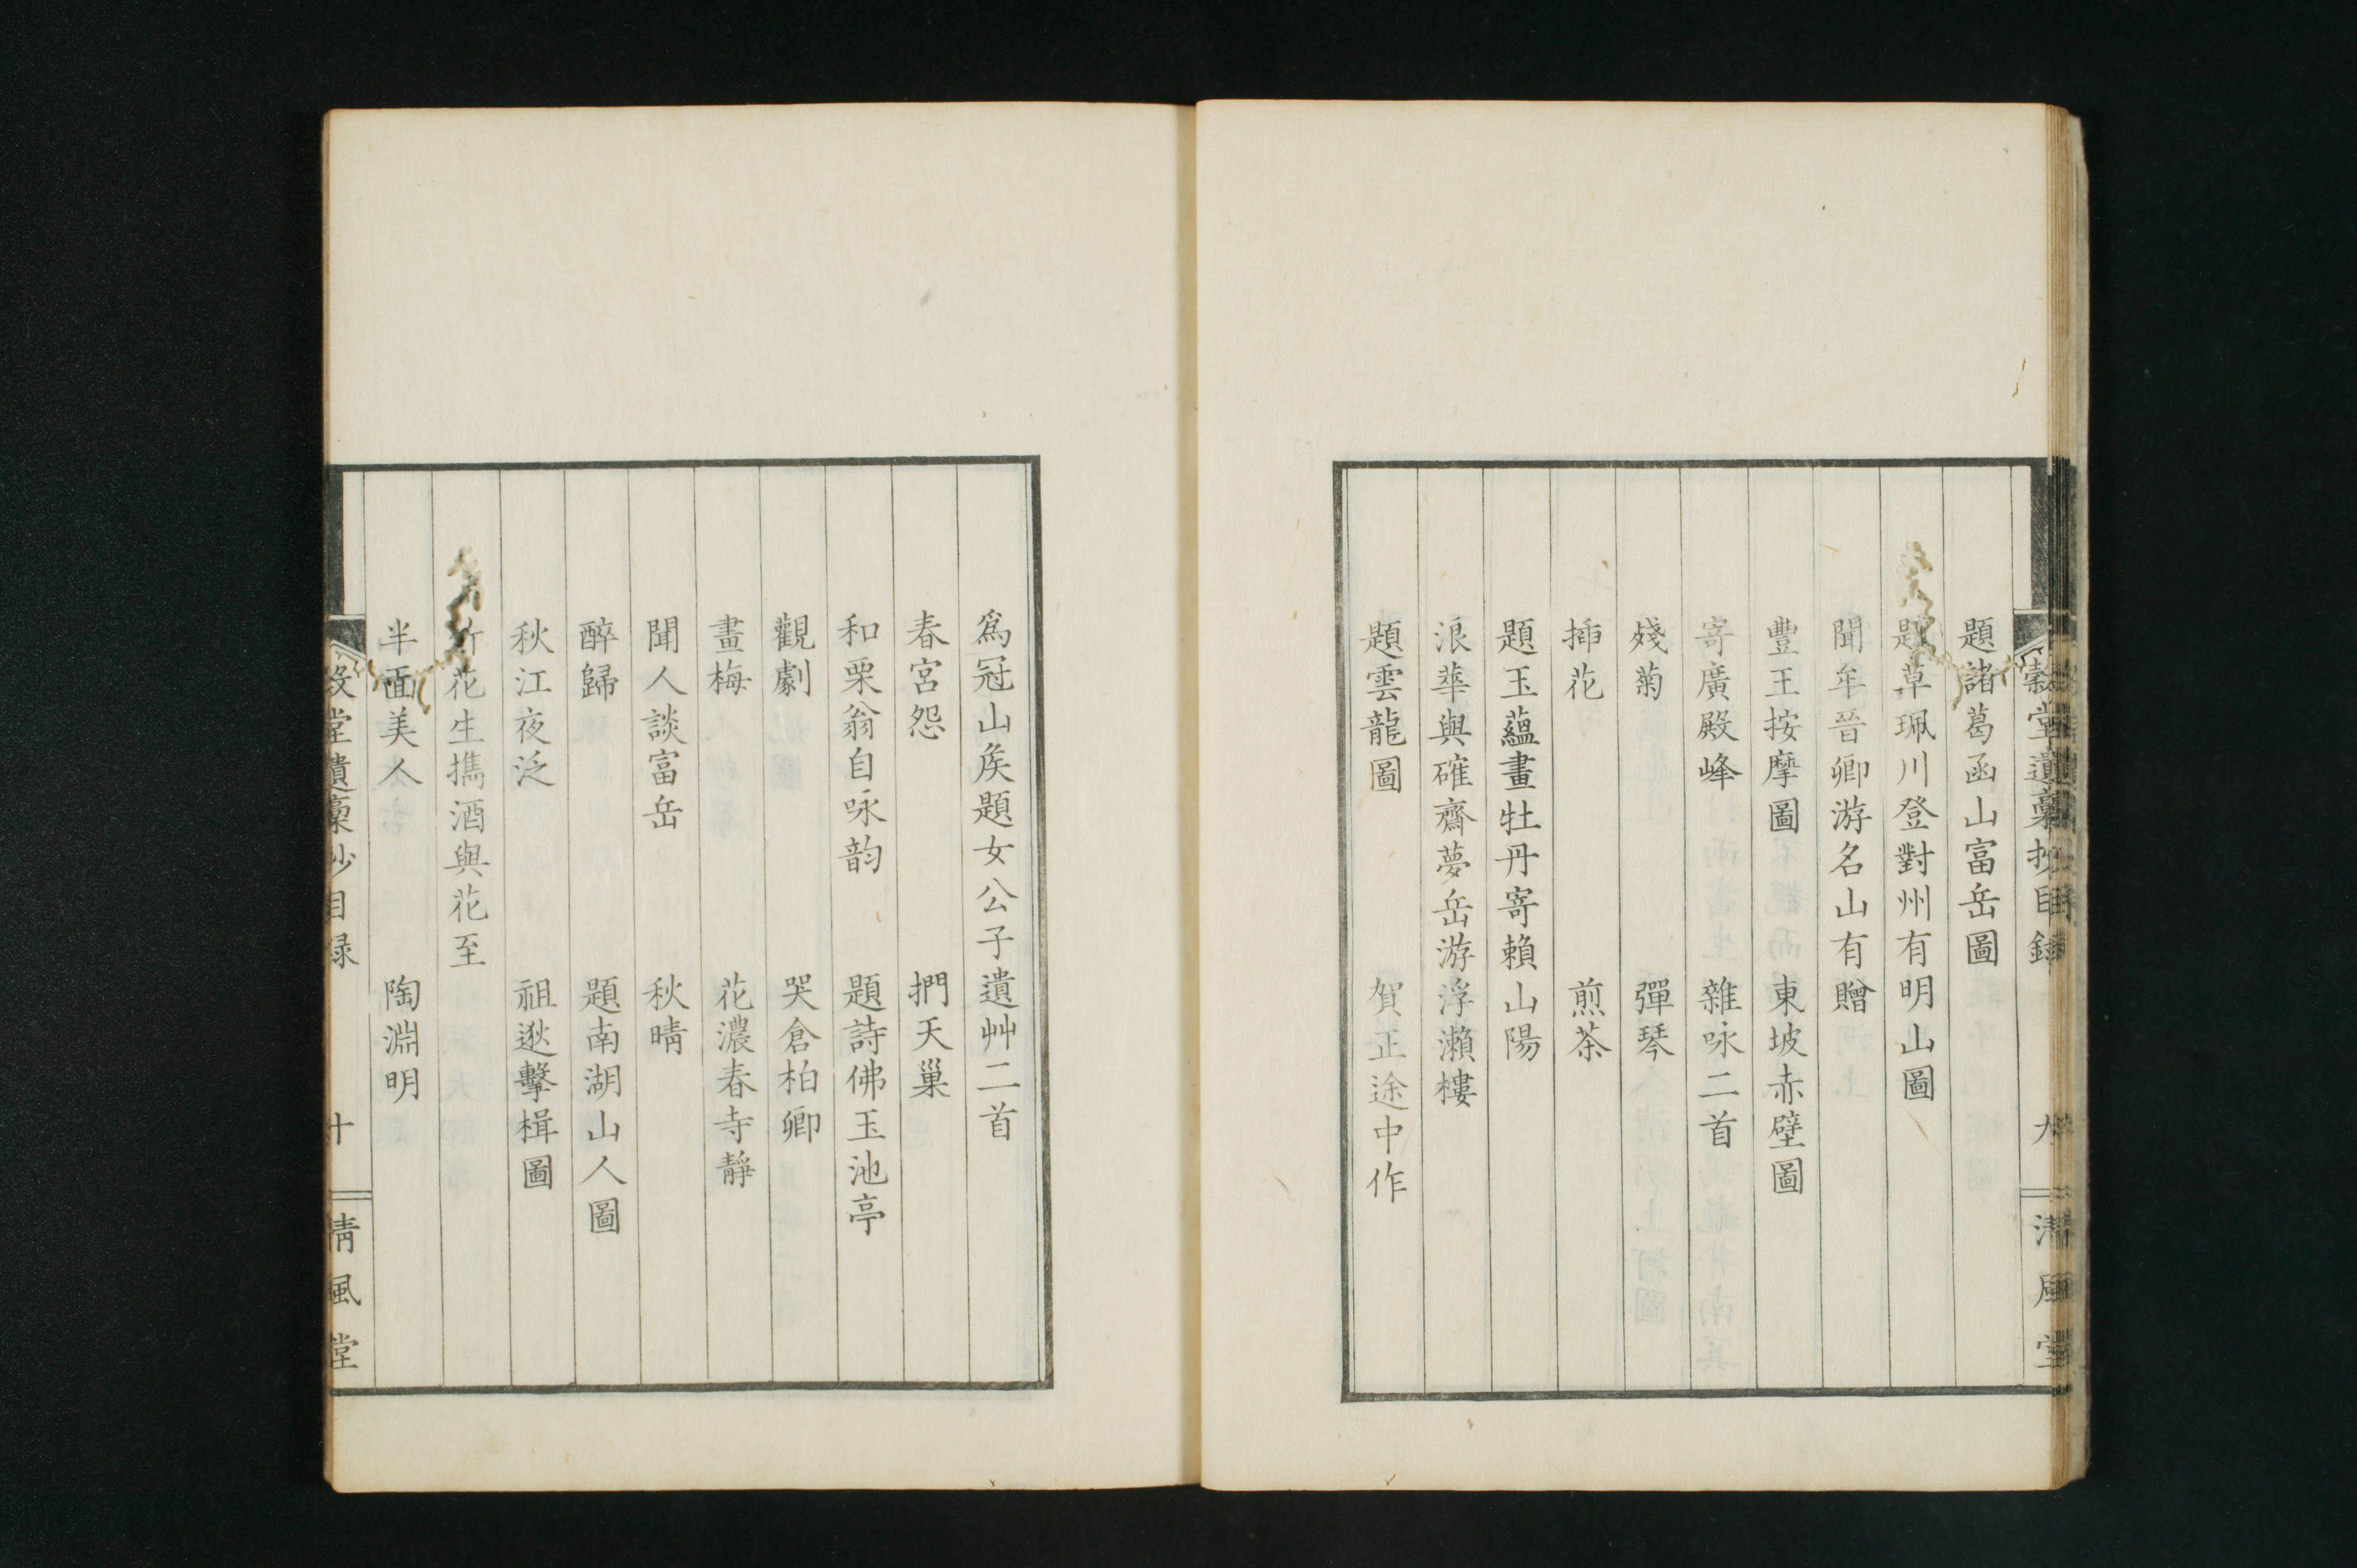 穀堂遺稾抄目錄 九 清風堂
題諸葛函山富岳圖
題草珮川登對州有明山圖
聞牟晉卿游名山有贈
豐王按摩圖 東坡赤壁圖
寄廣殿峰 雜咏二首
殘菊 彈琴
揷花 煎茶
題玉蘊畫牡丹寄賴山陽
浪華與確齋夢岳游浮瀨樓
題雲龍圖 賀正途中作
爲冠山矦題女公子遺艸二首
春宮怨 捫天巢
和栗翁自咏韵 題詩佛玉池亭
觀劇 哭倉柏卿
畫梅 花濃春寺靜
聞人談富岳 秋晴
醉歸 題南湖山人圖
秋江夜泛 祖逖擊楫圖
竹花生擕酒與花至
半面美人 陶淵明
穀堂遺稾抄目録 十 清風堂